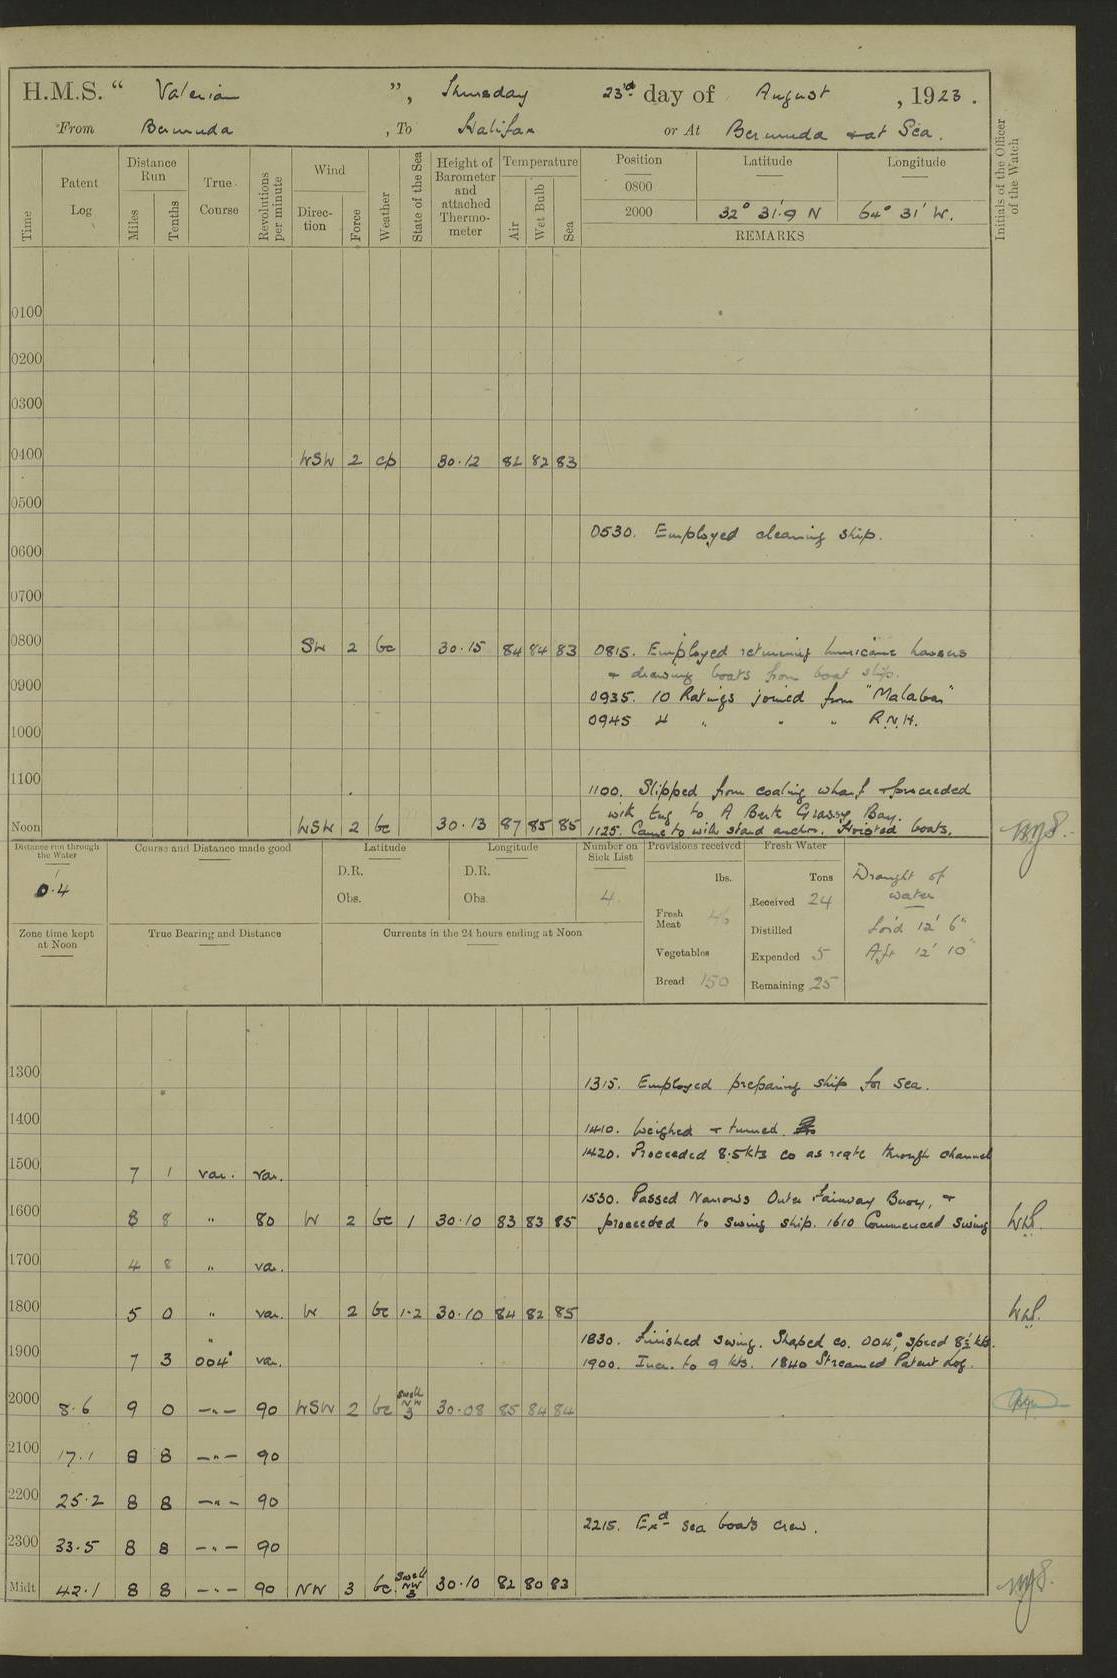 H.M.S. “ Valerian ”, Thursday 23rd day of August , 1923.
From Bermuda , To Halifax or At Bermuda & at Sea.
Time Patent Log Distance Run Miles Tenths True Course Revolutions per minute Wind Direction Force Weather State of the Sea Height of Barometer and attached Thermometer Temperature Air Wet Bulb Sea Position Latitude Longitude Initials of the Officer of the Watch
0800
2000 32° 31'.9 N 64° 31' W.
REMARKS
0100
0200
0300
0400 WSW 2 cp 30.12 82 82 83
0500
0530. Employed cleaning ship.
0600
0700
0800 SW 2 bc 30.15 84 84 83 0815. Employed returning hurricane hawsers
& drawing boats from boat slip.
0900
0935. 10 Ratings joined from "Malabar"
0945 4 " " " R.N.H.
1000
1100
1100. Slipped from coaling wharf & proceeded
with tug to A Berth Grassy Bay.
Noon WSW 2 bc 30.13 87 85 85 1125. Came to with stard anchor. Hoisted boats.
Distance run through the Water Course and Distance made good Latitude Longitude Number on Sick List Provisions received Fresh Water Draught of
water
0.4 D.R. D.R. lbs. Tons
Obs. Obs. 4 Received 24
Fresh Meat For'd 12' 6"
Zone time kept at Noon True Bearing and Distance Currents in the 24 hours ending at Noon Distilled Aft 12' 10"
Vegetables Expended 5
Bread 150 Remaining 25
1300
1315. Employed preparing ship for sea.
1400
1410. Weighed & turned.
1420. Proceeded 8.5 kts co as reqte through channel
1500 7 1 var. var.
1530. Passed Narrows Outer Fairway Buoy, &
1600 8 8 " 80 W 2 bc 1 30.10 83 83 85 proceeded to swing ship. 1610 Commenced swing
1700 4 8 " var.
1800 5 0 " var. W 2 bc 1-2 30.10 84 82 85
" 1830. Finished swing. Shaped co. 004°, speed 8½ kts.
1900 7 3 004° var. 1900. Incr. to 9 kts. 1840 Streamed Patent Log.
2000 8.6 9 0 —"— 90 WSW 2 bc Swell NW 3 30.08 85 84 84
2100 17.1 8 8 —"— 90
2200 25.2 8 8 —"— 90
2215. Exd sea boats crew.
2300 33.5 8 8 —"— 90
Midt. 42.1 8 8 —"— 90 NW 3 bc Swell NW 3 30.10 82 80 83